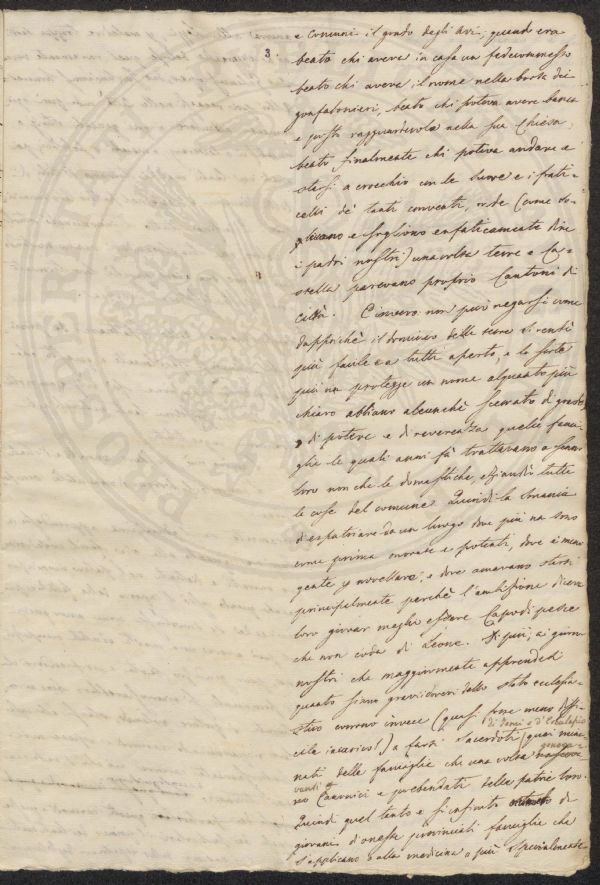 3.
e comuni il grado degli Avi; quand'era
beato chi avere in casa un fedecommesso
beato chi aveva il nome nella borsa dei
gonfalonieri, beato chi poteva avere banca
e posto ragguardevole nella sua Chiesa,
beato finalmente chi poteva andare a
starsi a crocchio con le suore e i frati-
celli de' tanti conventi, onde (come so-
levano e sogliono enfaticamente dire
i padri nostri) una volta terre e Ca-
stella parevano proprio Cantoni di
città. E invero non può negarsi come
dappoichè il dominio delle terre si rendè
più facile e a tutti aperto, e la sorte
più non protegge un nome alquanto più
chiaro abbiano alcunchè scemato di grado,
di potere e di reverenza quelle fami-
glie le quali anni fà trattavano a senno
loro non che le domestiche, eziandio tutte
le cose del comune. Quindi la smania
di espatriare da un luogo dove più non sono
come prima onorate e potenti, dove è meno
gente a novellare, e dove amavano starsi
principalmente perchè l'ambizione diceva
loro giovar meglio essere Capo di pesce
che non coda di Leone. Di più, ai giorni
nostri che maggiormente apprendesi
quanto siano gravi i doveri dello stato ecclesia-
stico corrono invece (quasi fosse meno diffi-
cile incarico!) a farsi Sacerdoti di Temi e d'Esculapio quei mede-
nati delle famiglie che una volta
no Canonici e prebendati delle patrie loro.
Quindi quel tanto e sì infinito di
giovani d'oneste provinciali famiglie che
s'applicano alla medicina, o più specialmente